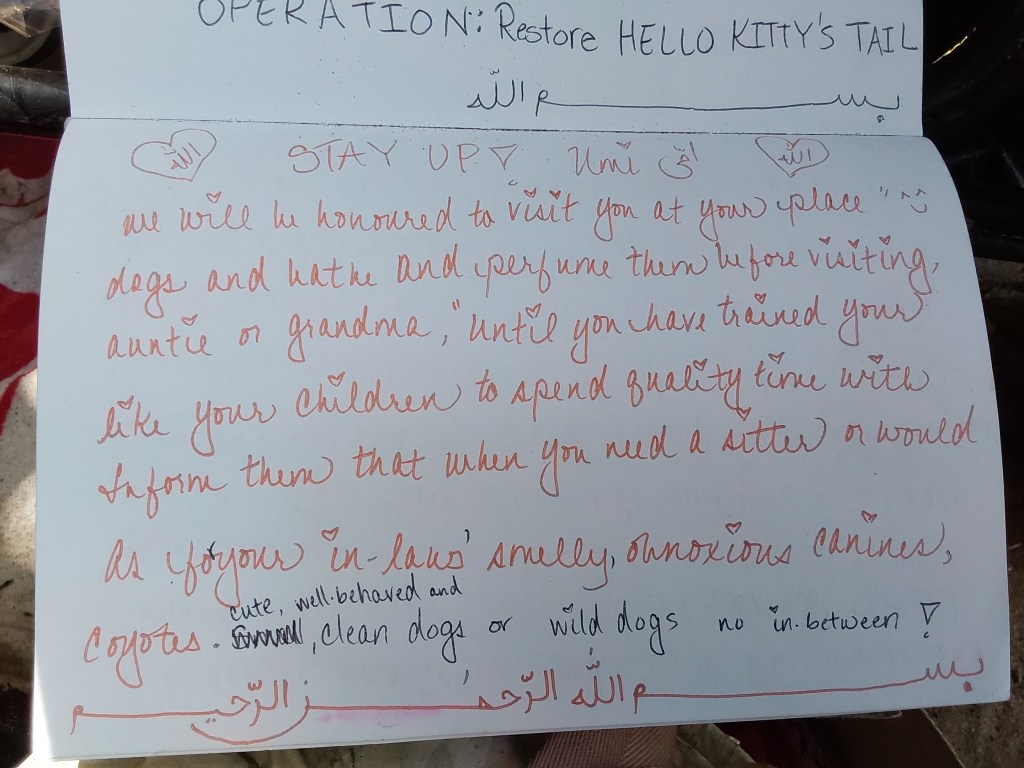 OPERATION: Restore HELLO KITTY'S TAIL
بسم الله
الله STAY UP! Umi أمّي الله
we will be honoured to visit you at your place"
dogs and bathe and perfume them before visiting,
auntie or grandma, "until you have trained your
like your children to spend quality time with
Inform them that when you need a sitter or would
As for your in-laws' smelly, obnoxious canines,
cute, well-behaved and
coyotes. , clean dogs or wild dogs no in-between!
بسم اللّٰه الرّحمٰن الرّحيم